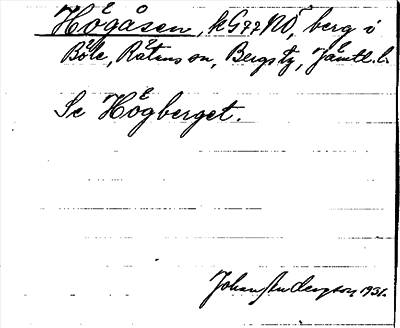 Högåsen, kG77NO, berg i
Böle, Råtens sn, Bergs tg, Jämtl. l.
Se Högberget.
Johan Anderson 1931.